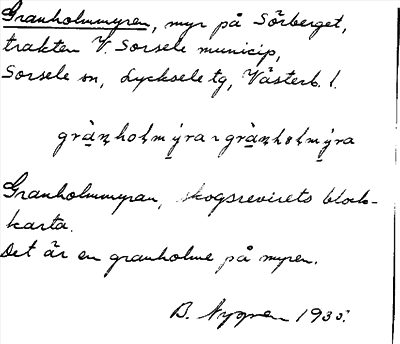 Granholmmyren, myr på Sörberget,
trakten V. Sorsele municip,
Sorsele sn, Lycksele tg, Västerb. l.
Granholmmyran, skogsrevirets block-
karta.
Det är en granholme på myren.
B. Nygren 1935.